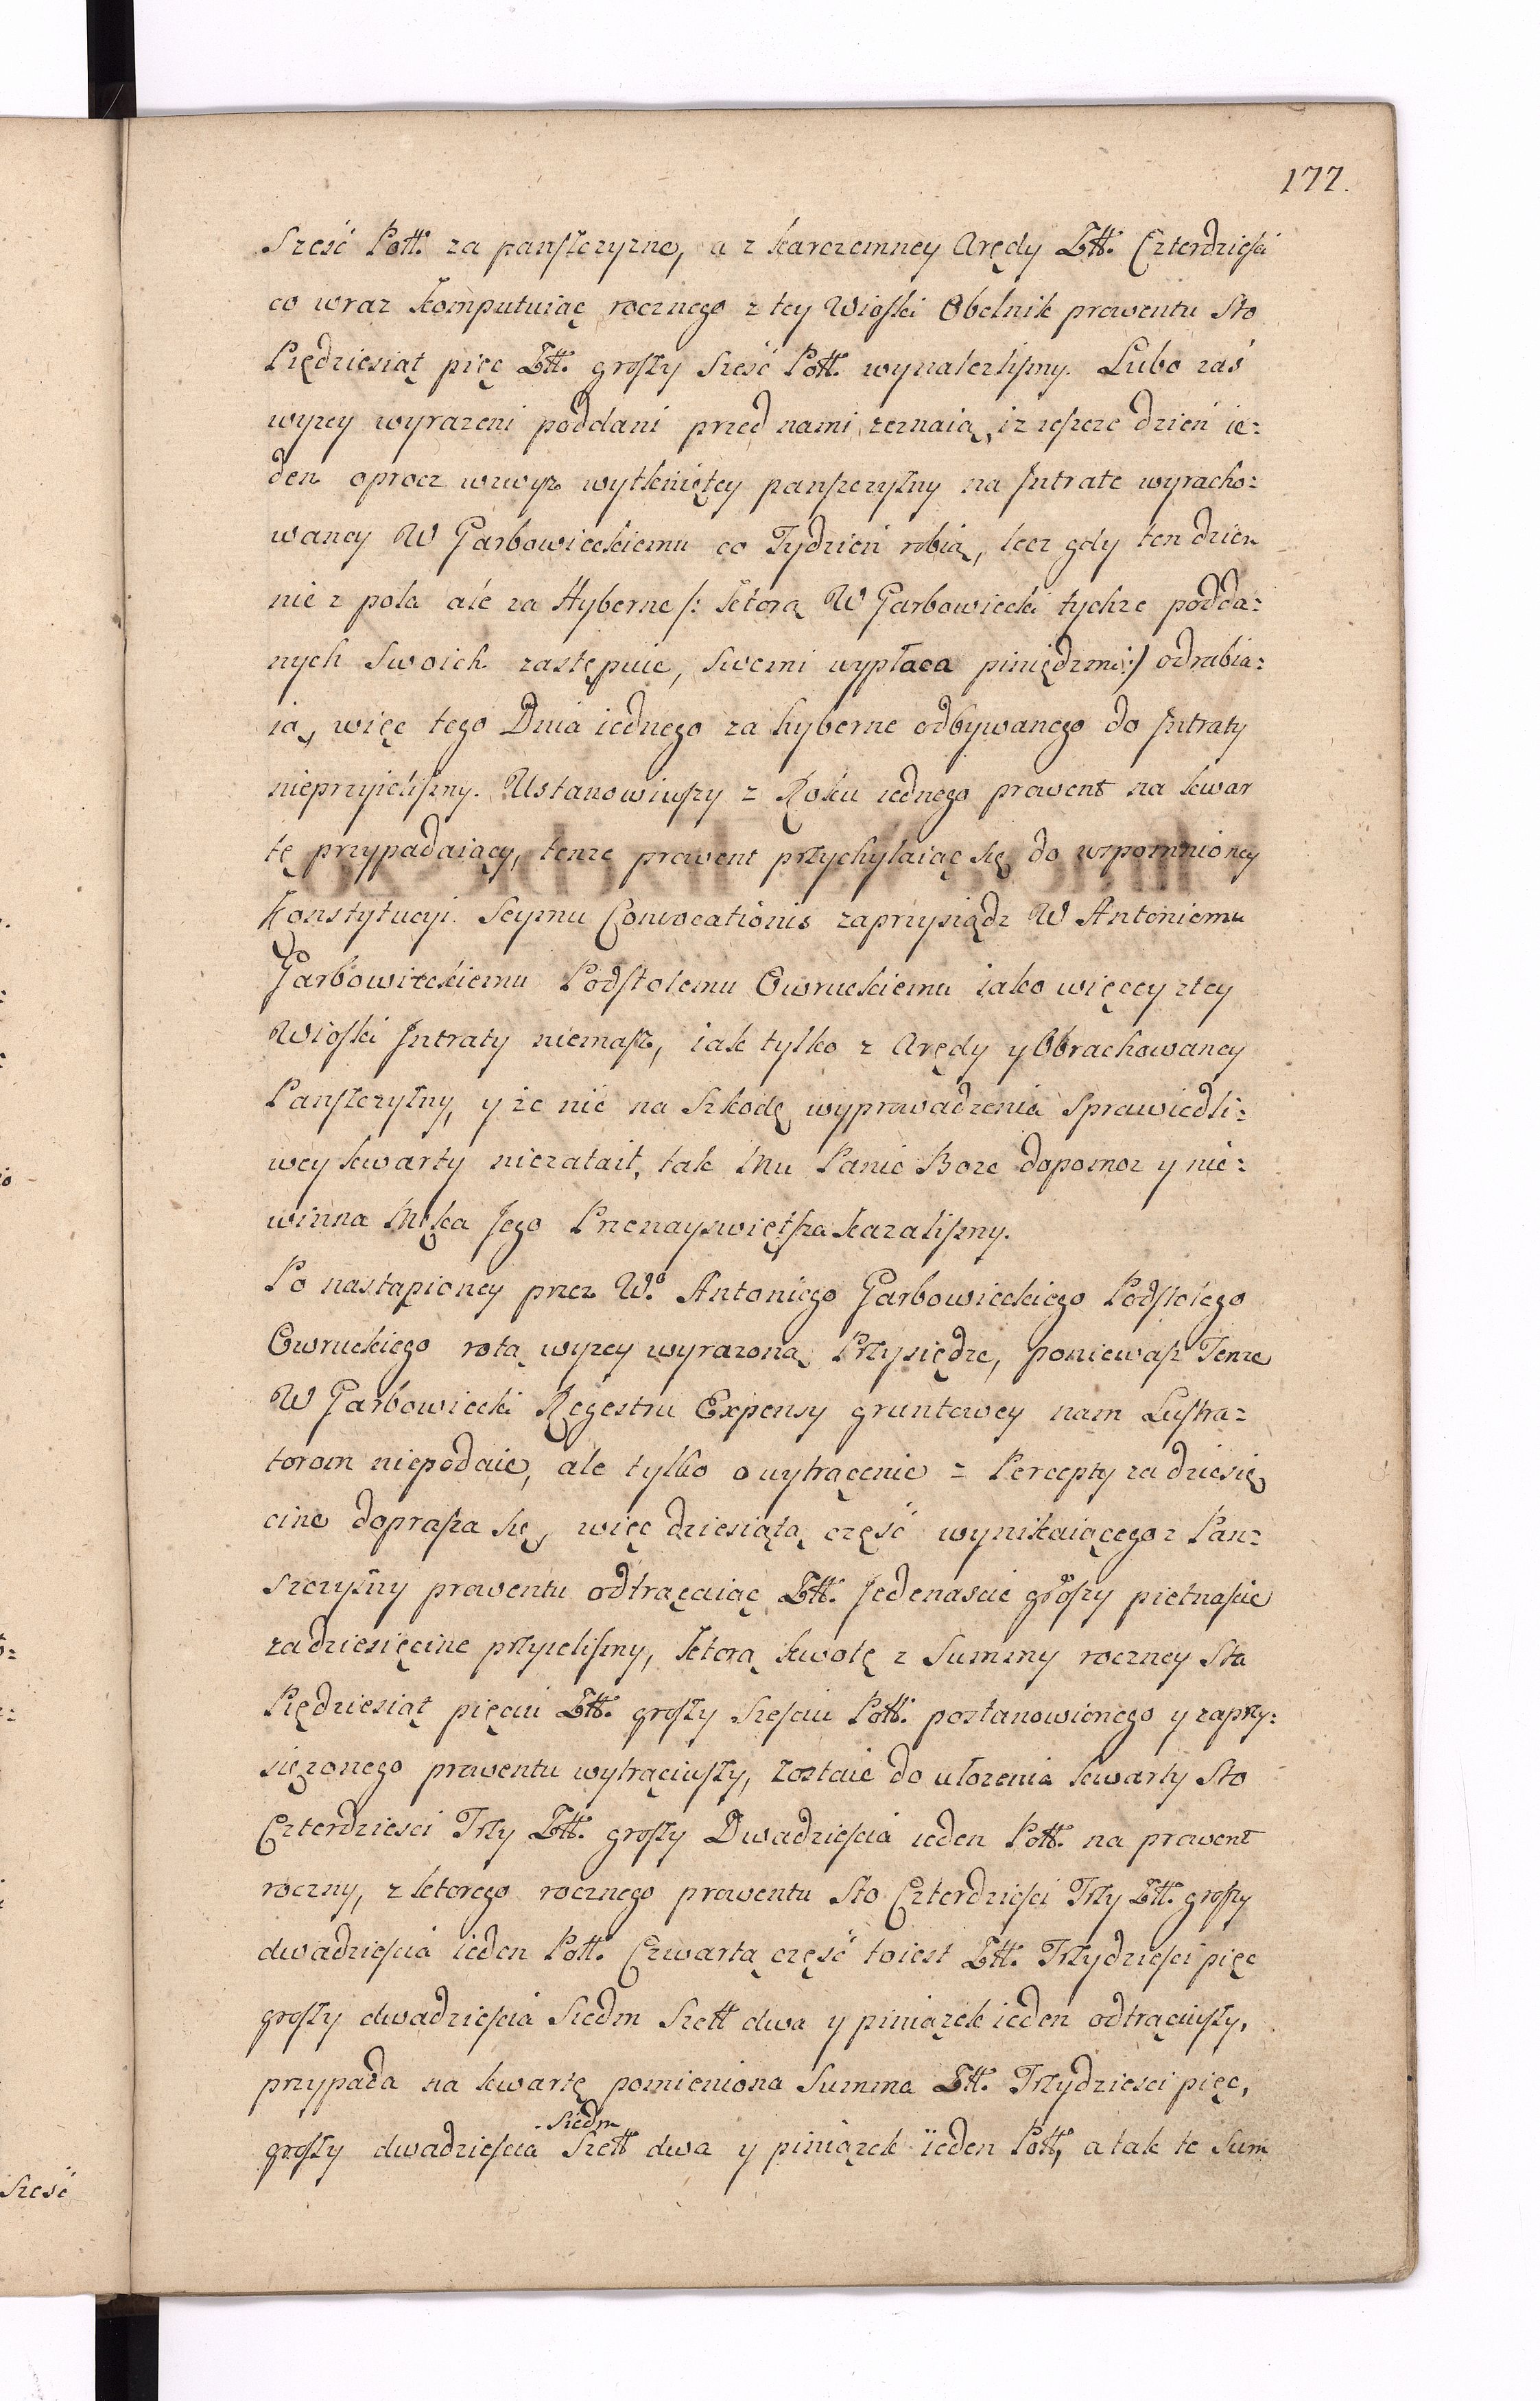 177.
Sześć Poll: za panszczyznę, a z karczemney Arędy Zll. Czterdzieści
co wraz komputuiąc rocznego z tey Wioski Obelnik prowentu Sto
Piędziesiąt pięc Zll. groszy Sześć Poll. wynalezlismy. Lubo zaś
wyzey wyrazeni poddani przed nami zeznaią, iz ieszcze dzień ie=
den oprocz wzwyz wytkniętey panszczyzny na Intratę wyracho=
waney W Garbowieckiemu co Tydzień robią, lecz gdy ten dzien
nie z pola ale za Hybernę /: ktorą W Garbowiecki tychze podda=
nych swoich zastępuie, swemi wypłaca piniędzmi :/ odrabia=
ią, więc tego Dnia iednego za hybernę odbywanego do Intraty
nieprzyielismy. Ustanowiwszy z Roku iednego prowent na kwar
tę przypadaiący, tenze prowent przychylaiąc się do wzpomnioney
Konstytucyi Seymu Convocationis zaprzysiądz W Antoniemu
Garbowieckiemu Podstolemu Owruckiemu iako więcey z tey
Wioski Intraty niemasz, iak tylko z Arędy y Obrachowaney
Panszczyzny, y ze nic na Szkodę wyprowadzenia Sprawiedli=
wey kwarty niezataił, tak Mu Panie Boze dopomoz y nie=
winna Męka Jego Przenayswiętsza kazalismy.
Po nastąpioney przez W.o Antoniego Garbowieckiego Podstolego
Owruckiego rotą wyzey wyrazoną Przysiędze, poniewasz Tenze
W Garbowiecki Regestru Expensy gruntowey nam Lustra=
torom niepodaie, ale tylko o wytrącenie z Percepty za dziesię
cinę doprasza się, więc dziesiątą część wynikaiącego z Pan=
szczyzny prowentu odtrącaiąc Zll. Jedenascie groszy pietnascie
za dziesięcinę przyielismy, ktorą kwotę z Summy roczney Sta
Piędziesiąt pięciu Zll. groszy Szesciu Poll. postanowionego y zaprzy=
sięzonego prowentu wytrąciwszy, zostaie do ułozenia kwarty Sto
Czterdziesci Trzy Zll. groszy Dwadziescia ieden Poll. na prowent
roczny, z ktorego rocznego prowentu Sto Czterdziesci Trzy Zll. groszy
dwadziescia ieden Poll. Czwartą część toiest Zll. Trzydziesci pięc
groszy dwadziescia Siedm Szell dwa y piniązek ieden odtrąciwszy,
przypada na kwartę pomieniona Summa Zll. Trzydziesci pięc,
Siedm
groszy dwadziescia Szell dwa y piniązek ieden Poll, a tak te Sum
Sześć